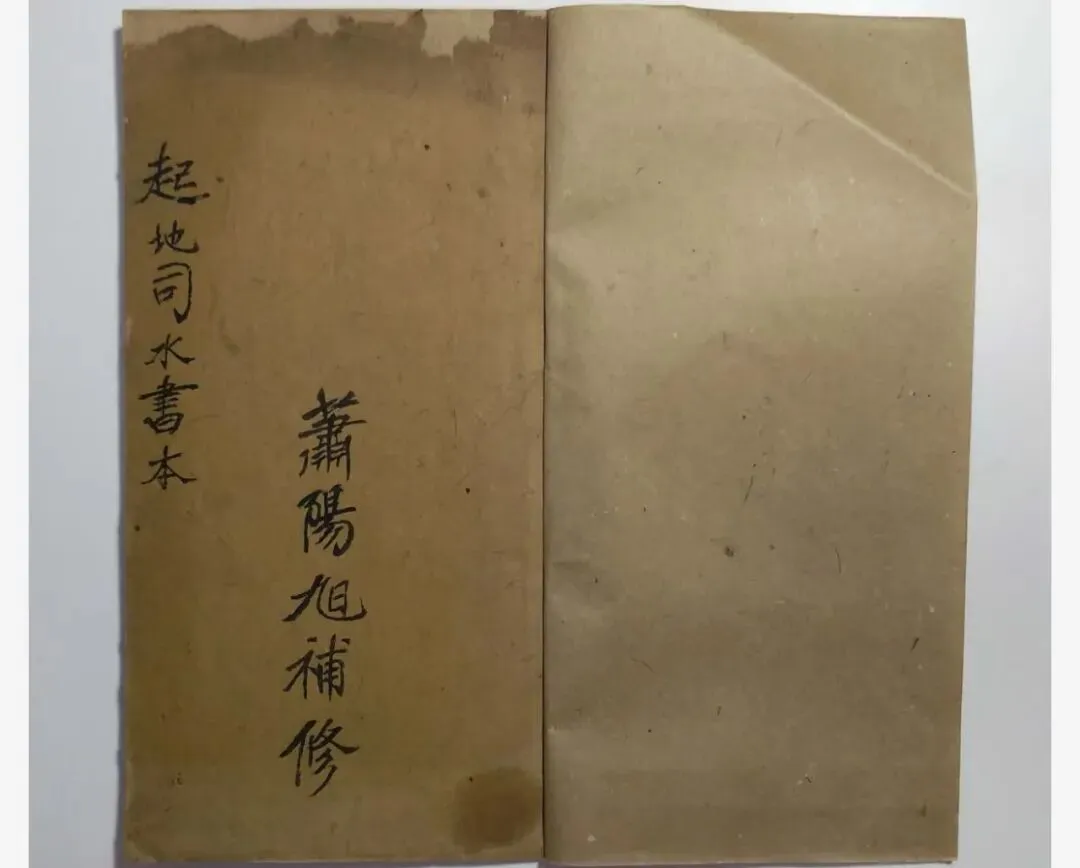 起地司水書本
蕭陽旭補修